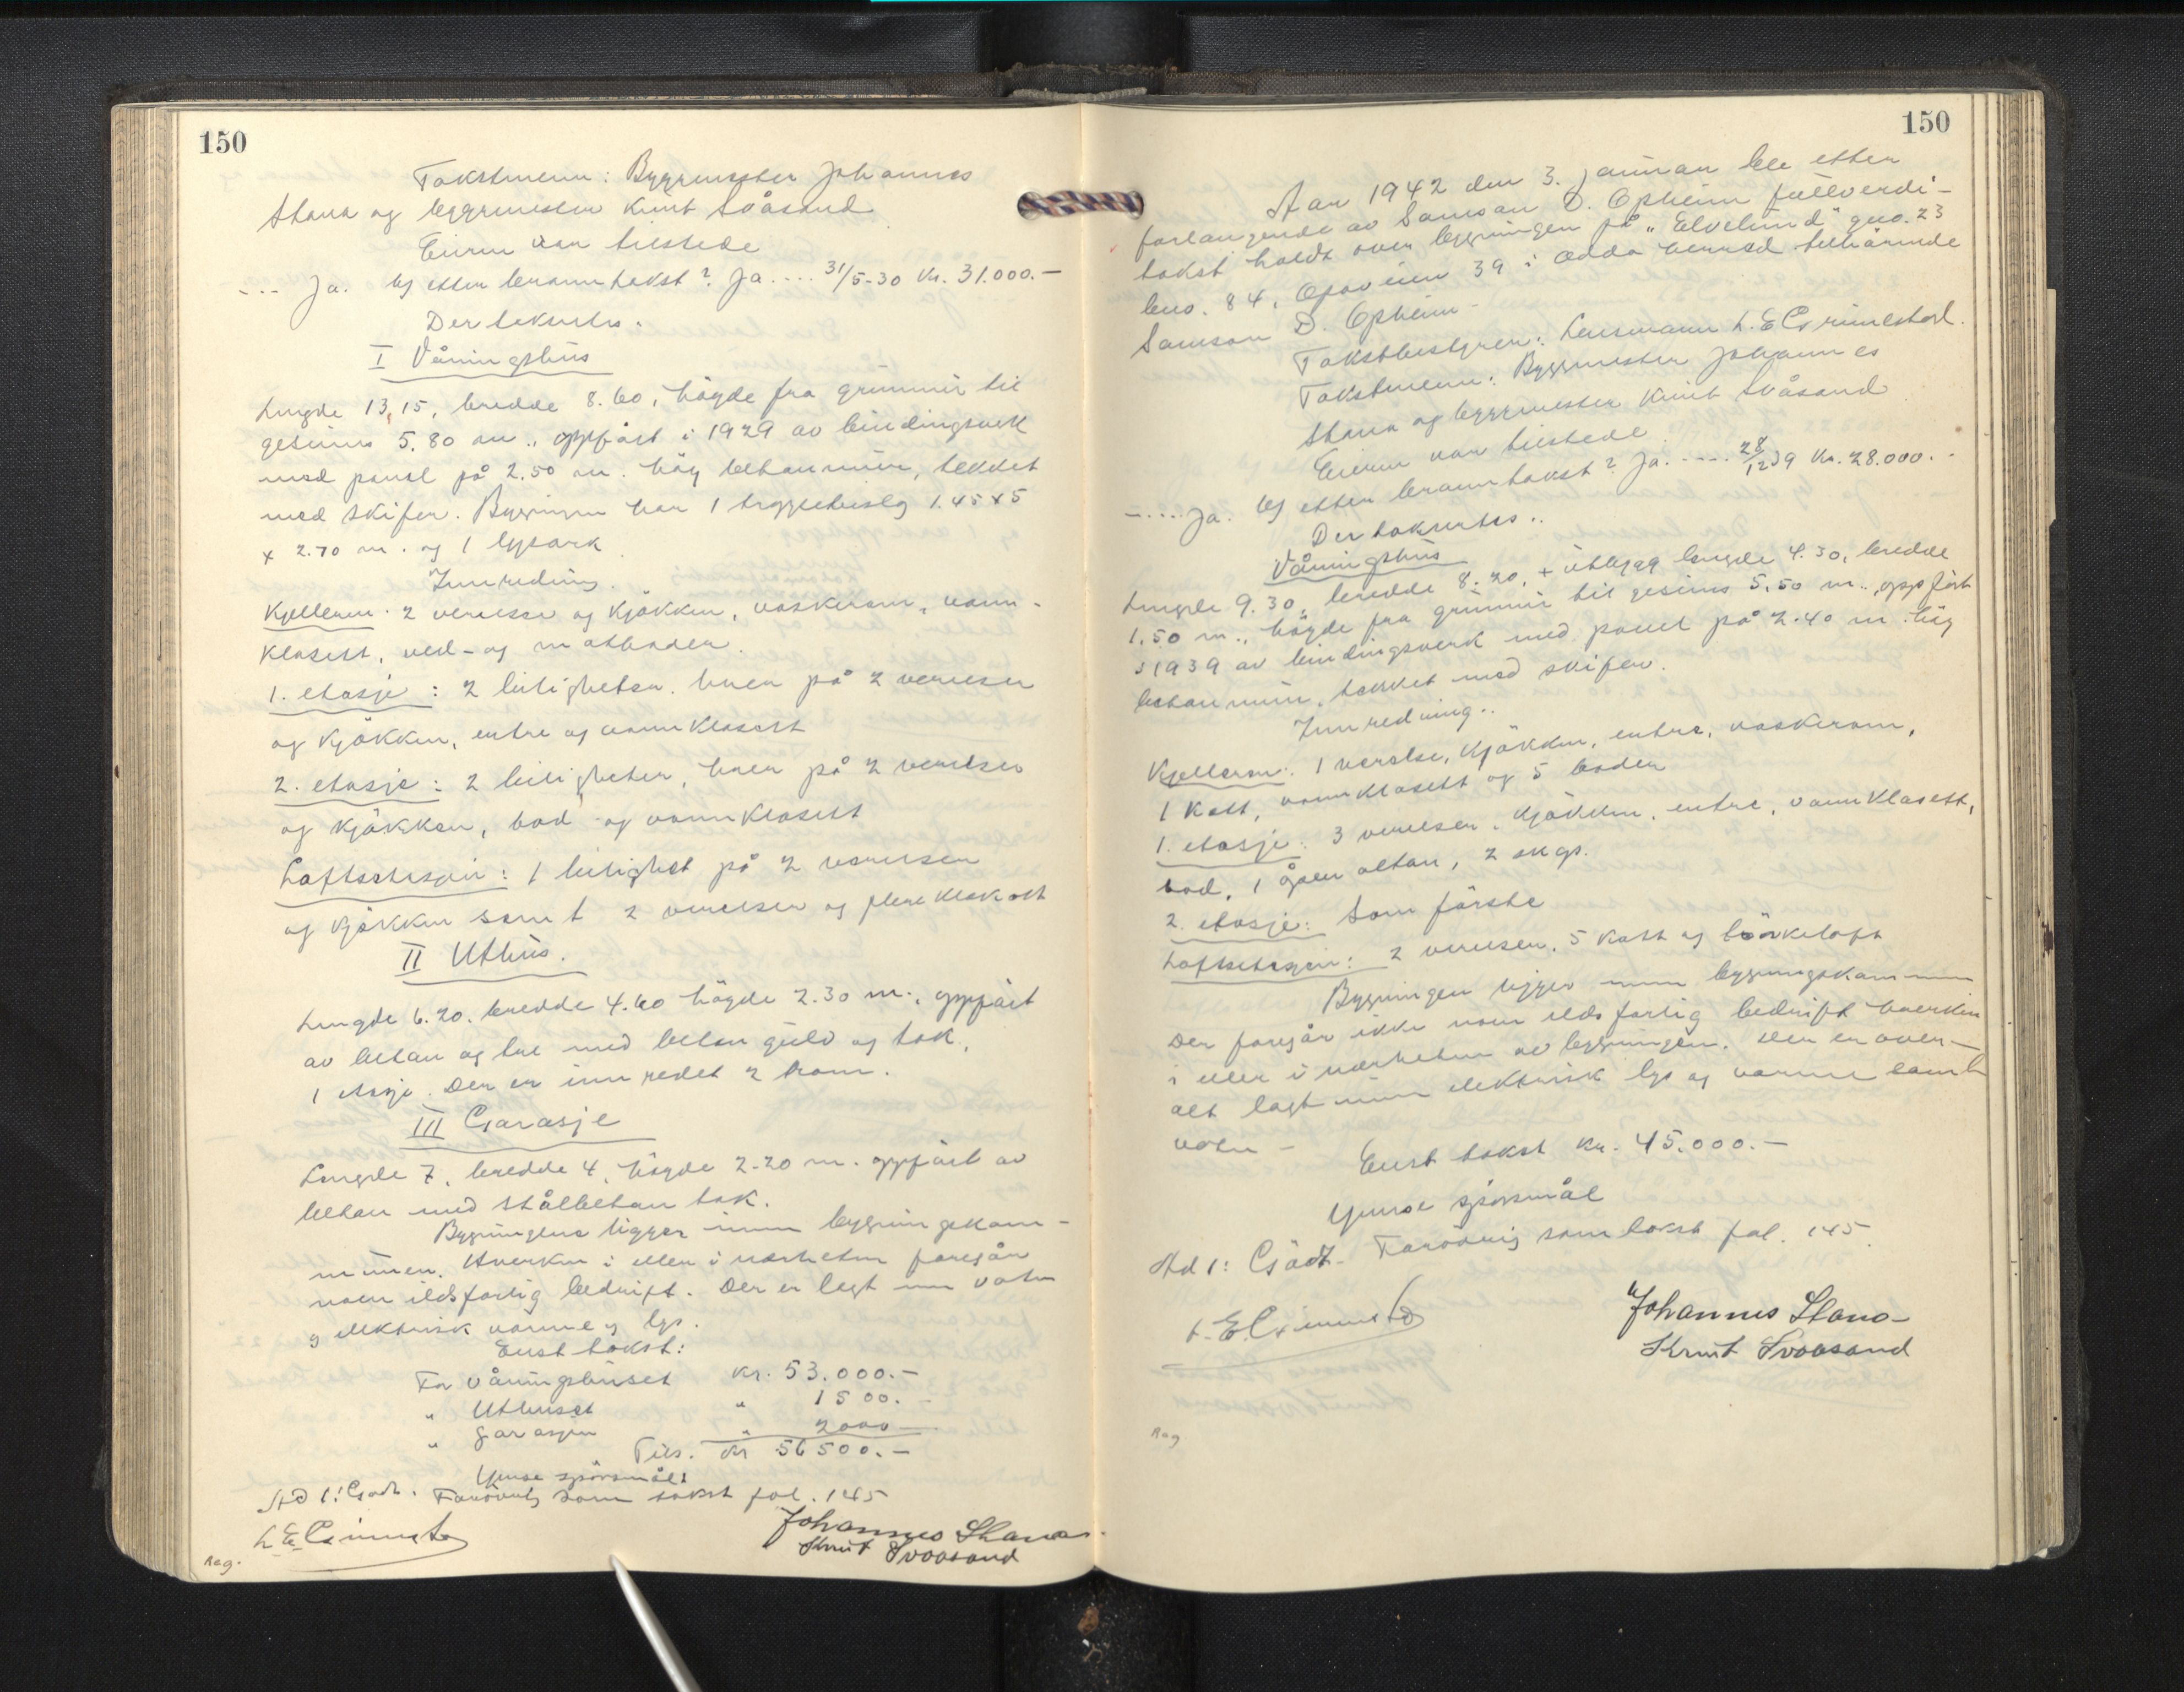 150
Takstmenn: Byggmester Johannes
Stana og byggmester Knut Svåsand
Eieren var tilstede
--- Ja. Ny etter branntakst? Ja .... 31/5-30 Kr. 31.000.-
Der takseres.
I Våningshus
Lengde 13,15, bredde 8.60, högde fra grunnmur til
gesims 5.80 m., oppfört i 1929 av bindingsverk
med panel på 2.50 m. hög betonmur, tekket
med skifer. Bygningen har 1 tryggebislag 1.45 x 5
x 2.70 m. og 1 lysark
Innredning.
Kjelleren. 2 verelser og kjökken, vaskerom, vann-
klosett, ved- og matboder.
1. etasje: 2 leiligheter, hver på 2 verelser
og kjökken, entre og vannklosett
2. etasje: 2 leiligheter, hver på 2 verelser
og kjökken, bad og vannklosett
Loftsetasjen: 1 leilighet på 2 verelser
og kjökken samt 2 verelser og flere kleskott
II Uthus.
Lengde 6.20, bredde 4.60 högde 2.30 m., oppfört
av beton og tre med beton gulv og tak,
1 etasje. Der er innredet 2 rom.
III Garasje
Lengde 7, bredde 4, högde 2.20 m. oppfört av
beton med stålbeton tak.
Bygningene ligger innen bygningskom-
munen. Hverken i eller i nærheten foregår
noen ildsfarlig bedrift. Der er lagt inn vatn
og elektrisk varme og lys.
Enst takst:
For våningshuset kr. 53.000.-
" Uthuset " 1500.-
" garasjen " 2000-
Tils. Kr 56500.-
Ymse spörsmål:
Ad 1: Godt. Forövrig som takst fol. 145
L. E. Grimestad
Johannes Stana
Knut Svaasand
Rag.
150
Aar 1942 den 3. januar ble etter
forlangende av Samson D. Opheim fullverdi-
takst holdt over bygningen på "Elvelund" gno. 23
bno. 84, Opoveien 39 i Odda herred tilhörende
Samson D. Opheim -
Takstbestyrer: Lensmann L. E. Grimestad.
Takstmenn: Byggmester Johannes
Stana og byggmester Knut Svåsand
Eieren var tilstede.
-.... Ja. Ny etter branntakst? Ja. .... 28/12 39 Kr. 28.000.-
Der takseres..
Våningshus
Lengde 9.30, bredde 8.20, + utbygg lengde 4.30, bredde
1.50 m., högde fra grunnmur til gesims 5,50 m., oppfört
i 1939 av bindingsverk med panel på 2.40 m. hög
betonmur, tekket med skifer.
Innredning..
Kjelleren: 1 verelse, kjökken, entre, vaskerom,
1 kott, vannklosett og 5 boder
1. etasje: 3 verelser, kjökken, entre, vannklosett,
bad, 1 åpen altan, 2 skap.
2. etasje: Som förste
Loftsetasjen: 2 verelser, 5 kott og törkeloft
Bygningen ligger innen bygningskommunen
Der foregår ikke noen ildsfarlig bedrift hverken
i eller i nærheten av bygningen. Der er over-
alt lagt inn elektrisk lys og varme samt
vatn -
Enst takst kr. 45.000.-
Ymse spörsmål
Ad 1: Godt. Forövrig som takst fol. 145.
L. E. Grimestad
Johannes Stana
Knut Svaasand
Rag